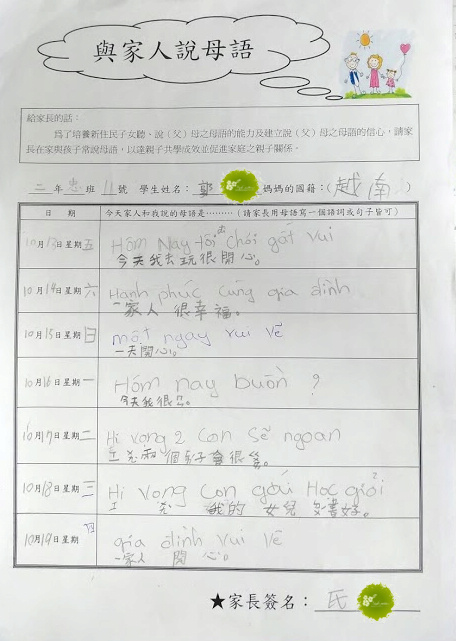 與家人說母語
給家長的話：
為了培養新住民子女聽、說（父）母之母語的能力及建立說（父）母之母語的信心，請家
長在家與孩子常說母語，以達親子共學成效並促進家庭之親子關係。
二 年 忠 班 11 號 學生姓名： 媽媽的國籍：（越南）
日 期 今天家人和我說的母語是………（請家長用母語寫一個語詞或句子皆可）
10月13日星期五 Hôm Nay tôi đi Chơi gất vui
今天我去玩很開心。
10月14日星期六 Hành phúc cùng gia đình
一家人 很幸福。
10月15日星期日 một ngay vui vẽ
一天開心。
10月16日星期一 Hôm nay buồn ?
今天我很
10月17日星期二 Hi vọng 2 con Sẽ ngoan
兩個 會很
10月18日星期三 Hi vọng Con gái Học giỏi
我的 女兒 書好。
10月19日星期四 gia đình vui vẽ
一家人 開心。
★家長簽名： 氏